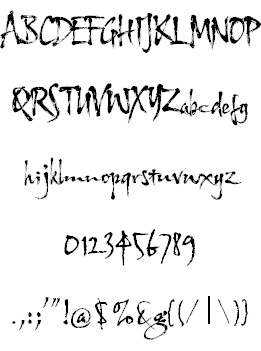 ABCDEFGHIJKLMNOP
QRSTUVWXYZabcdefg
hijklmnopqrstuvwxyz
0123456789
.,:;'"!@$%&g{(/|\)}